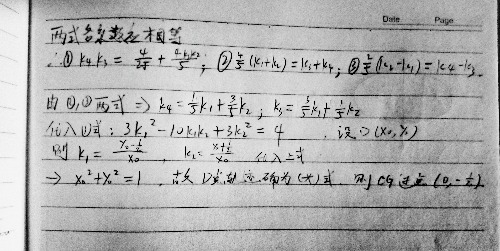 Date Page
两式各系数应相等
∴① k₄k₃ = 4/25 + 4k₁k₂/5 ; ② 4/5(k₁+k₂) = k₃+k₄ ; ③ 2/5(k₂-k₁) = k4-k₃.
由②,③两式 => k₄ = 1/5k₁+3/5k₂ ; k₃ = 3/5k₁+1/5k₂
代入①式: 3k₁²-10k₁k₂+3k₂² = 4 . 设D(x₀,y₀)
则 k₁ = , k₂ = 代入上式
→ x₀²+y₀² = 1 , 故D点轨迹确为(*)式. 则CG过点(0,-1/2).